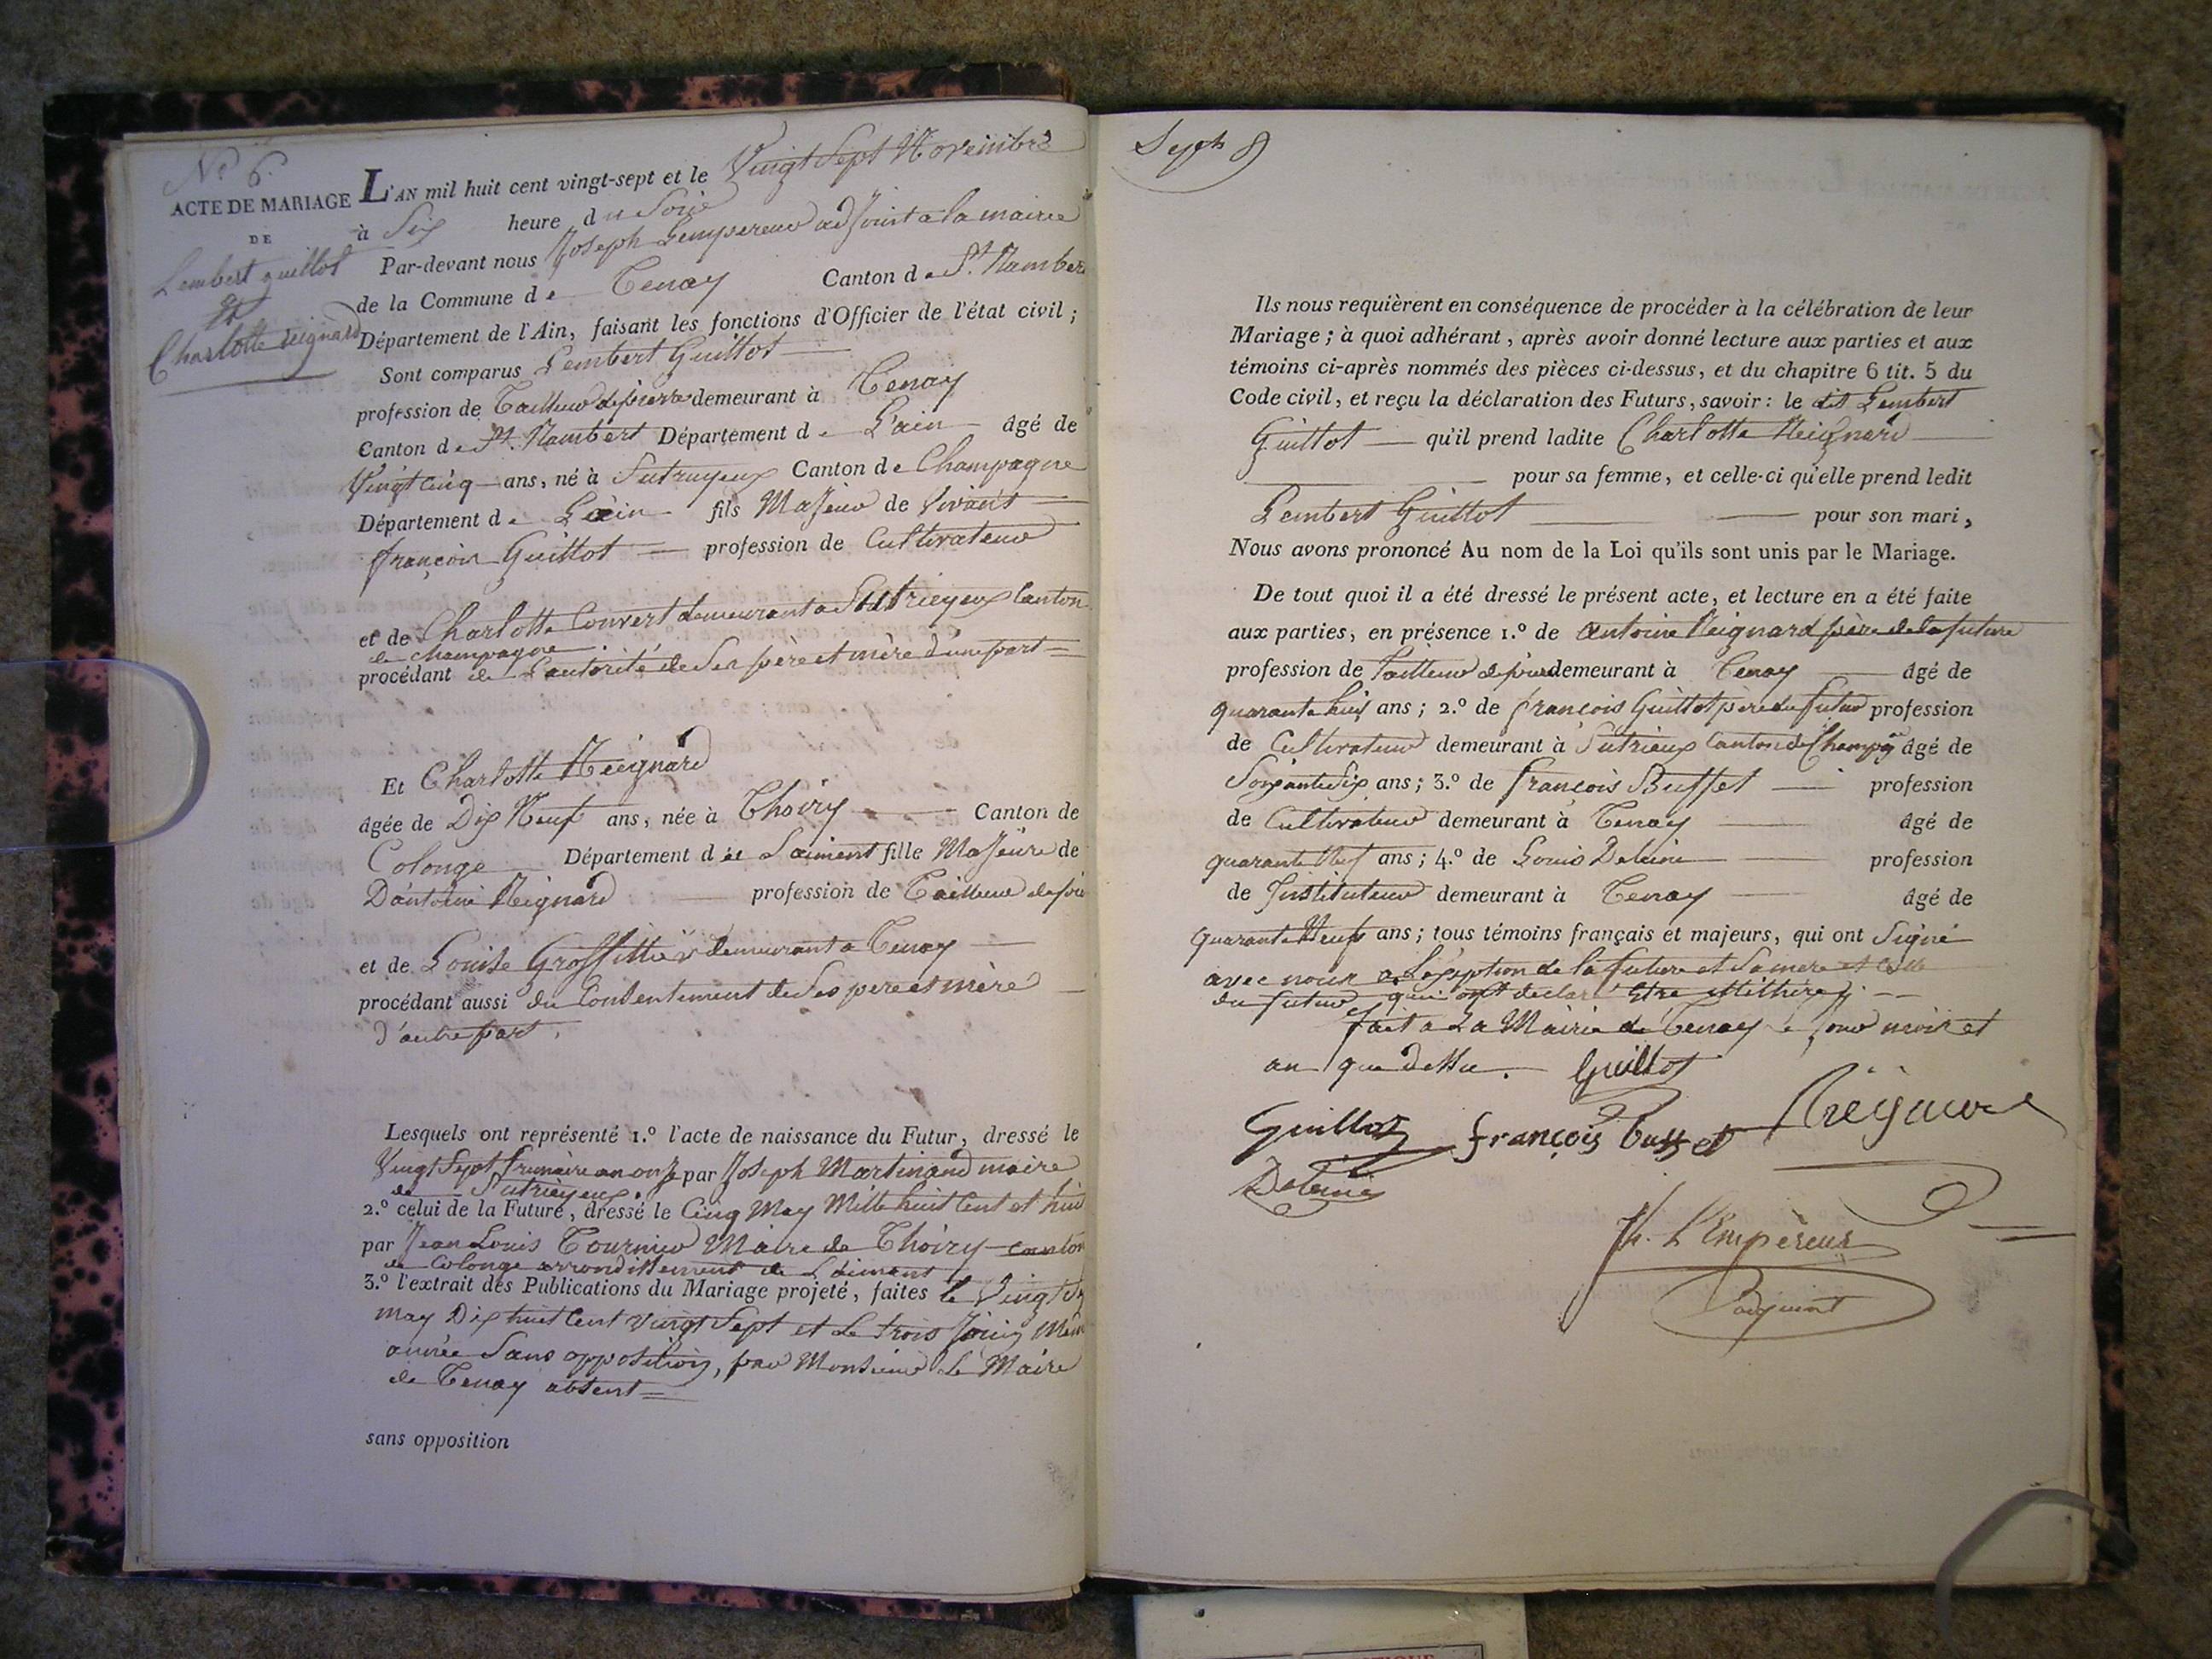 N.o 6.
ACTE DE MARIAGE
DE
Lembert guillot
et
Charlotte Neignard
L'AN mil huit cent vingt-sept et le Vingt Sept Novembre
à Six heure du Soir
Par-devant nous Joseph Lempereur adjoint a la mairie
de la Commune de Tenay Canton de St. Rambert
Département de l'Ain, faisant les fonctions d'Officier de l'état civil ;
Sont comparus Lembert Guillot
profession de Tailleur de pierre demeurant à Tenay
Canton de St. Rambert Département de L'ain âgé de
Vingt cinq ans, né à Sutrieyeux Canton de Champagne
Département de L'ain fils Majeur de vivants
françois Guillot profession de Cultivateur
et de Charlotte Convert demeurant a Sutrieyeux Canton
de Champagne.
procédant de L'autorité de Ses père et mère d'une part =
Et Charlotte Neignard
âgée de Dix Neuf ans, née à Thoiry Canton de
Colonge Département de Laiment fille Majeure de
D'antoine Neignard profession de Tailleur de pie
et de Louise demeurant a Tenay
procédant aussi du Consentement de Ses pere et mère
D'autre part.
Lesquels ont représenté 1.o l'acte de naissance du Futur, dressé le
Vingt Sept frimaire an onze par Joseph Martinand maire
de Sutrieyeux.
2.o celui de la Future, dressé le Cinq May Mille huit Cent et huit
par Jean Louis Tournier Maire de Thoiry canton
de Colonge arrondissement de Laiment
3.o l'extrait des Publications du Mariage projeté, faites le Vingt
may Dix huit Cent vingt Sept et Le trois Juin Même
année Sans opposition, par Monsieur Le Maire
de Tenay absent =
sans opposition
Sept 8
Ils nous requièrent en conséquence de procéder à la célébration de leur
Mariage ; à quoi adhérant, après avoir donné lecture aux parties et aux
témoins ci-après nommés des pièces ci-dessus, et du chapitre 6 tit. 5 du
Code civil, et reçu la déclaration des Futurs, savoir : le dit Lembert
Guillot qu'il prend ladite Charlotte Neignard
pour sa femme, et celle-ci qu'elle prend ledit
Lembert Guillot pour son mari,
Nous avons prononcé Au nom de la Loi qu'ils sont unis par le Mariage.
De tout quoi il a été dressé le présent acte, et lecture en a été faite
aux parties, en présence 1.o de antoine Neignard père de la future
profession de Tailleur de pierre demeurant à Tenay âgé de
quarante huit ans ; 2.o de françois Guillot père du futur profession
de Cultivateur demeurant à Sutrieux Canton de Champ. âgé de
Soixante Six ans ; 3.o de françois Buffet profession
de Cultivateur demeurant à Tenay âgé de
quarante Neuf ans ; 4.o de Louis Deleine profession
de Instituteur demeurant à Tenay âgé de
quarante Neuf ans ; tous témoins français et majeurs, qui ont Signé
avec nous a Léxception de la future et Sa mere et Celle
du futur, qui ont declaré Etre illithérés.
fait a La Mairie de Tenay Le jour mois et
an que dessu. Guillot
Guillot françois buffet Neignard
Deleine
Jh. L'Empèreur
adjoint